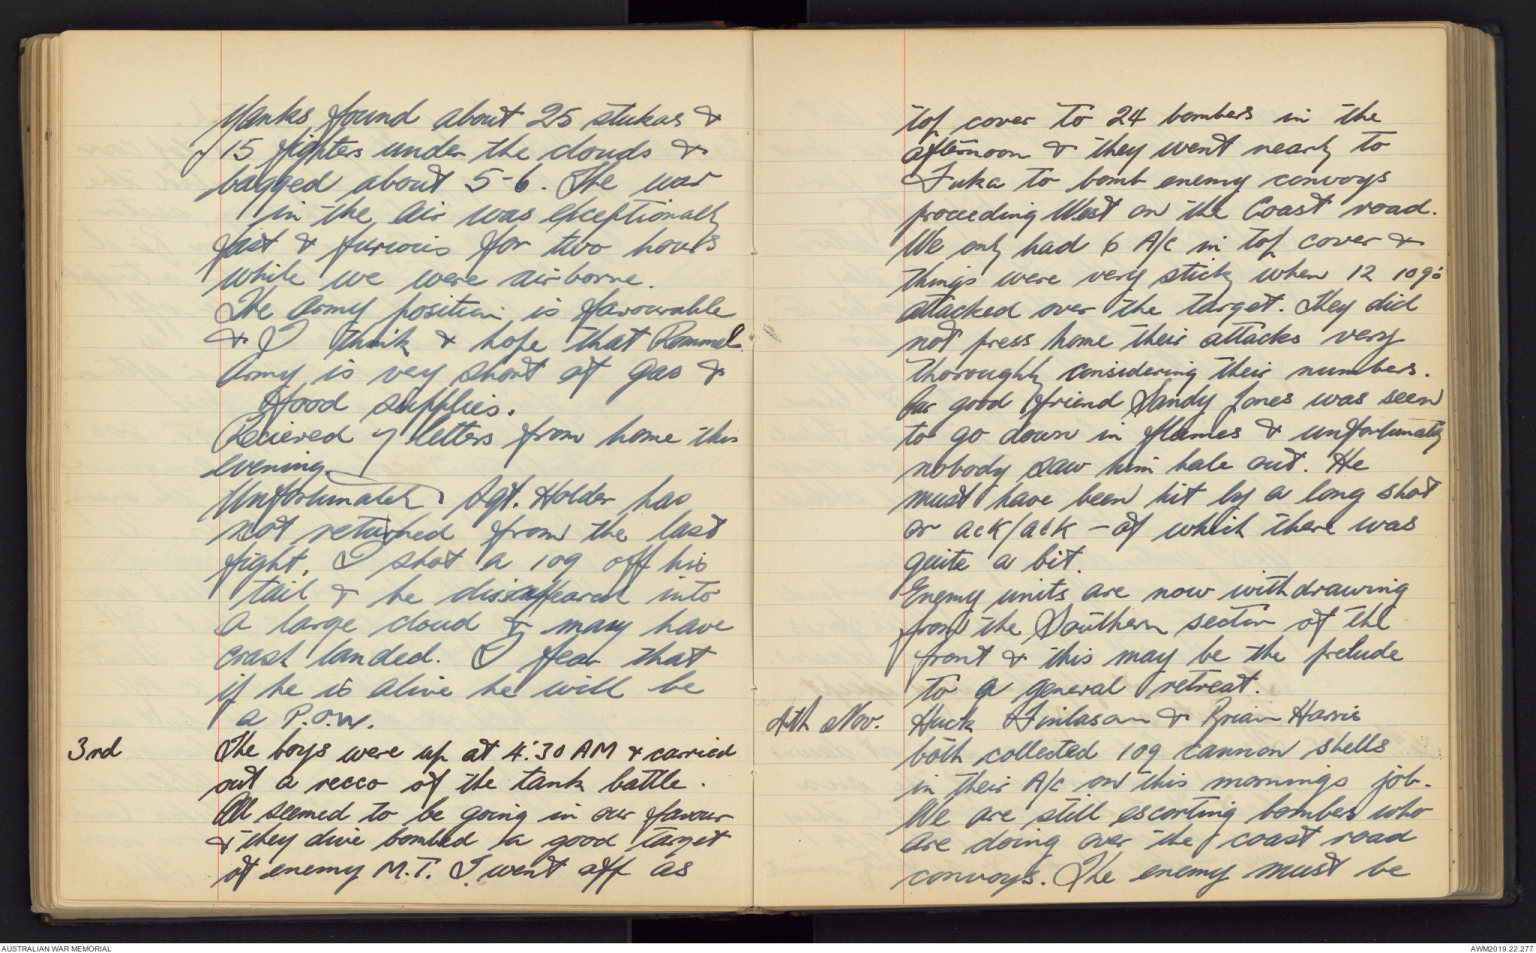 Yanks found about 25 stukas &
15 fighters under the clouds &
bagged about 5-6. The war
in the air was exceptionally
fast & furious for two hours
while we were airborne.
The Army position is favourable
& I think & hope that Rommel
Army is very short of gas &
food supplies.
Recieved 7 letters from home this
evening.
Unfortunately Sgt. Holder has
not returned from the last
fight. I shot a 109 off his
tail & he dissappeared into
a large cloud & may have
crash landed. I fear that
if he is alive he will be
a P.O.W.
3rd The boys were up at 4:30 AM & carried
out a recco of the tank battle.
All seemed to be going in our favour
& they dive bombed a good target
of enemy M.T. I went off as
top cover to 24 bombers in the
afternoon & they went nearly to
Fuka to bomb enemy convoys
proceeding West on the Coast road.
We only had 6 A/c in top cover &
things were very sticky when 12 109s
attacked over the target. They did
not press home their attacks very
thoroughly considering their numbers.
Our good friend Sandy Jones was seen
to go down in flames & unfortunately
nobody saw him bale out. He
must have been hit by a long shot
or ack/ack - of which there was
quite a bit.
Enemy units are now withdrawing
from the Southern sector of the
front & this may be the prelude
to a general retreat.
4th Nov. Huck Finlason & Brian Harris
both collected 109 cannon shells
in their A/c on this mornings job.
We are still escorting bombers who
are doing over the coast road
convoys. The enemy must be
AUSTRALIAN WAR MEMORIAL
AWM2019.22.277